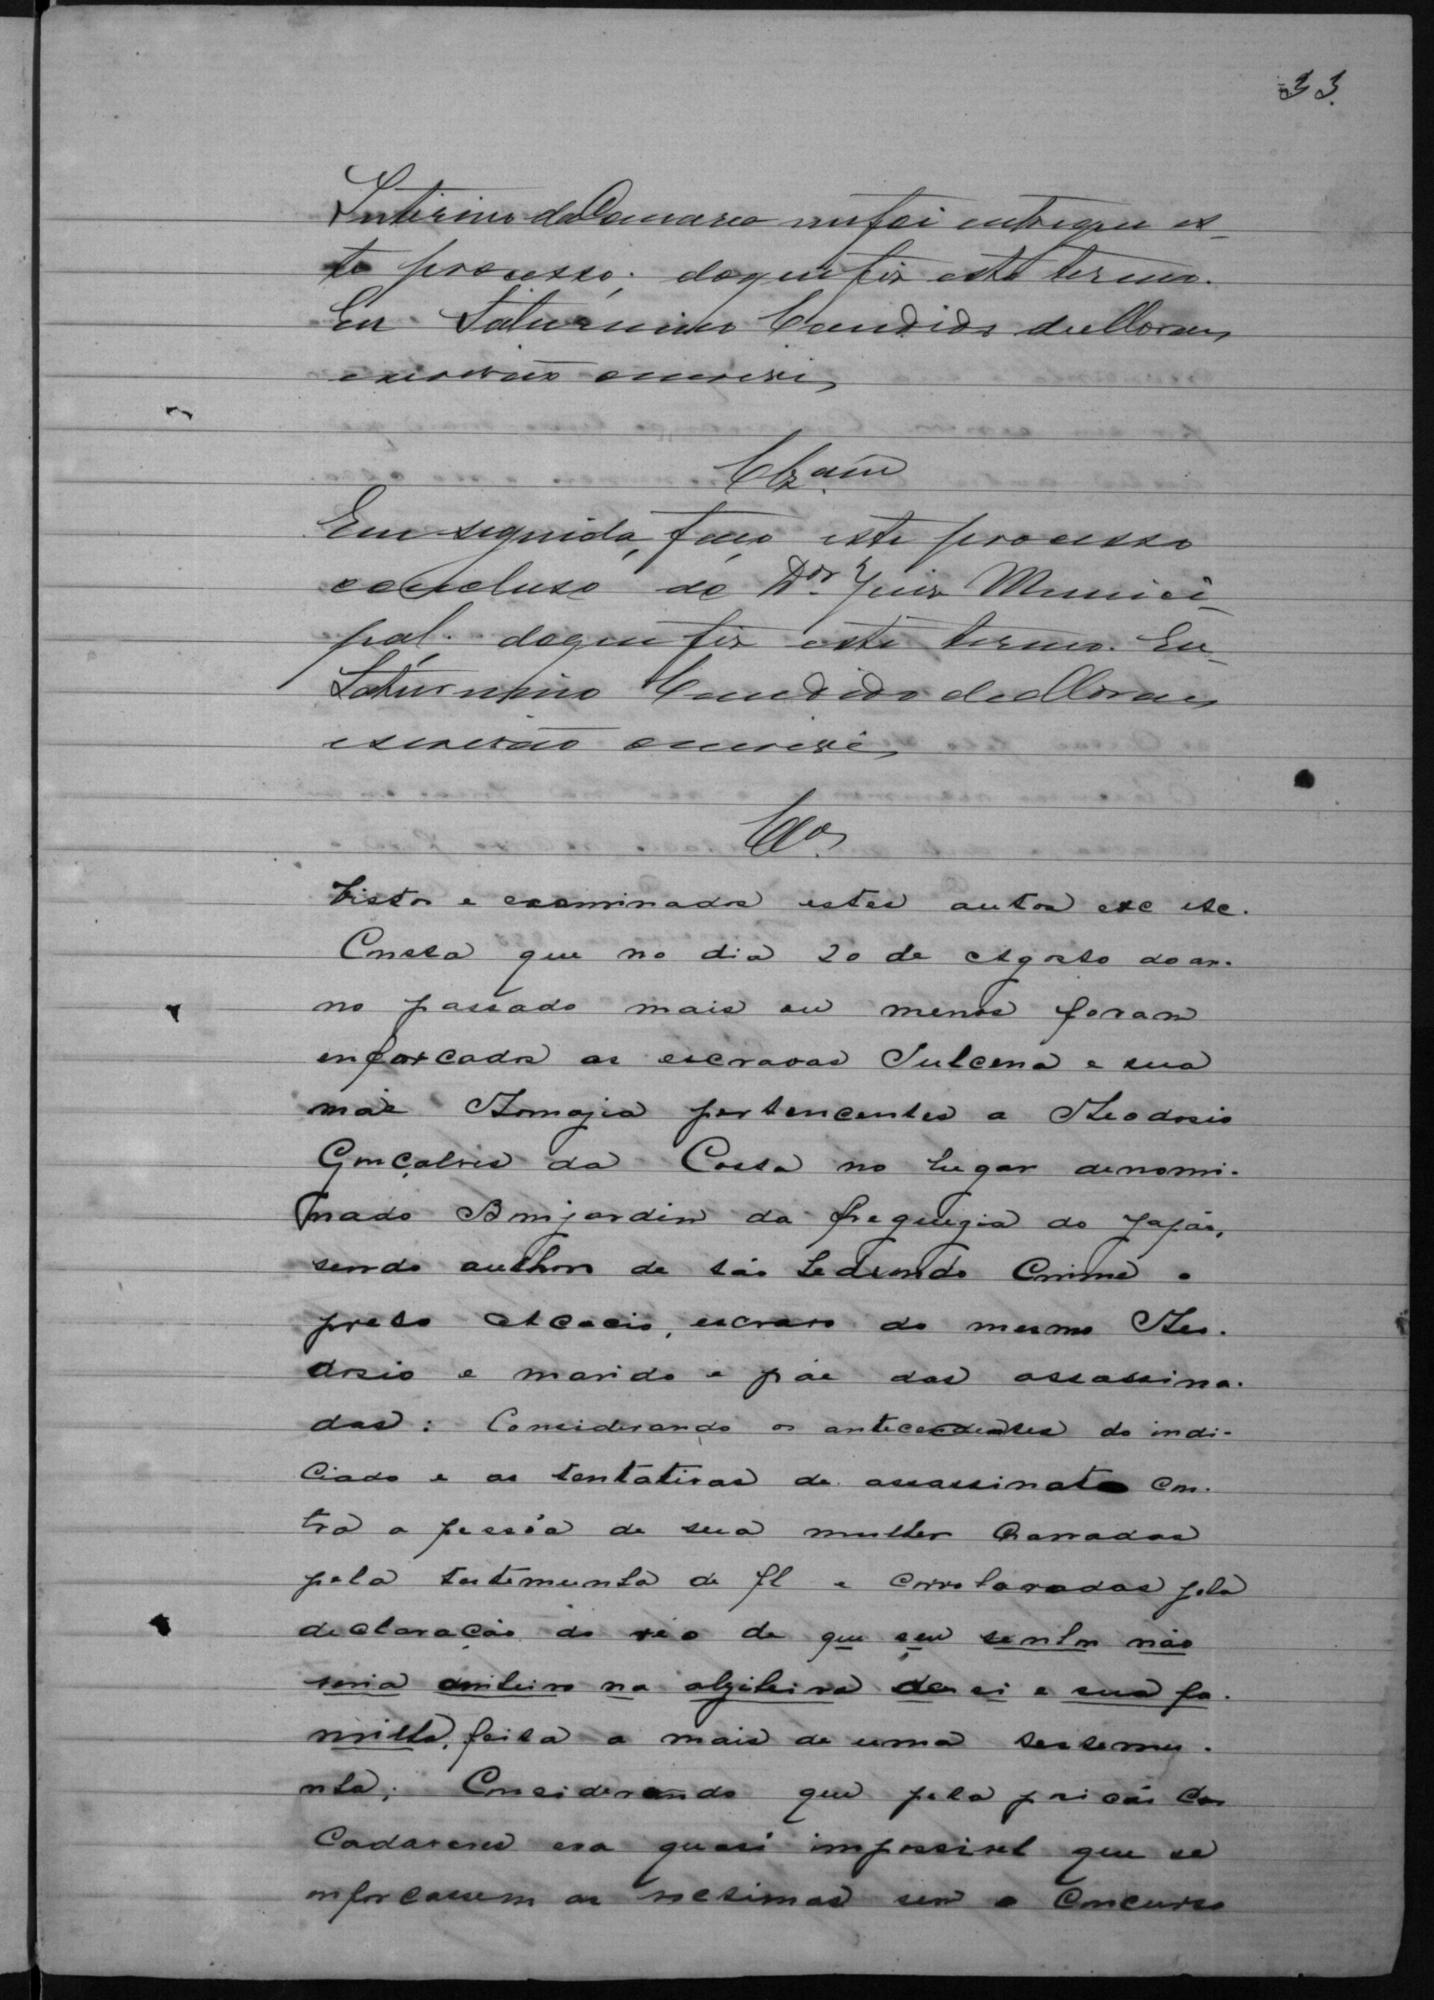 33.
Interino da Comarca me foi entregue es-
te processo; do que fiz este termo.
Eu Saturnino Candido de Moraes,
escrivão o escrevi,
Clz.am
Em seguida, faço este processo
concluso ao Dor. Juiz Munici-
pal; do que fiz este termo. Eu-
Saturnino Candido de Moraes,
escrivão o escrevi,
Clos.
Vistos e examinados estes autos etc etc.
Consta que no dia 20 de Agosto do an-
no passado mais ou menos foram
enforcados as escravas Sulcena e sua
mãe pertencentes a Theodosio
Gonçalves da Costa no lugar denomi-
nado Bonjardin da freguezia do
sendo author de tão hediondo Crime o
preto Acacio, escravo do mesmo Theo-
dosio e marido e páe das assassina-
das: Considerando os antecedentes do indi-
ciado e as tentativas de assassinato con-
tra a pessôa de sua mulher narradas
pela testemunha de fl e corroboradas pela
declaração do réo de que seu senhor não
teria dinheiro na algibeira de si e sua fa-
milha, feita a mais de uma testemu-
nha; Considerando que pela posição dos
Cadaveres era quasi impossivel que se
enforcassem as victimas sem o Concurso